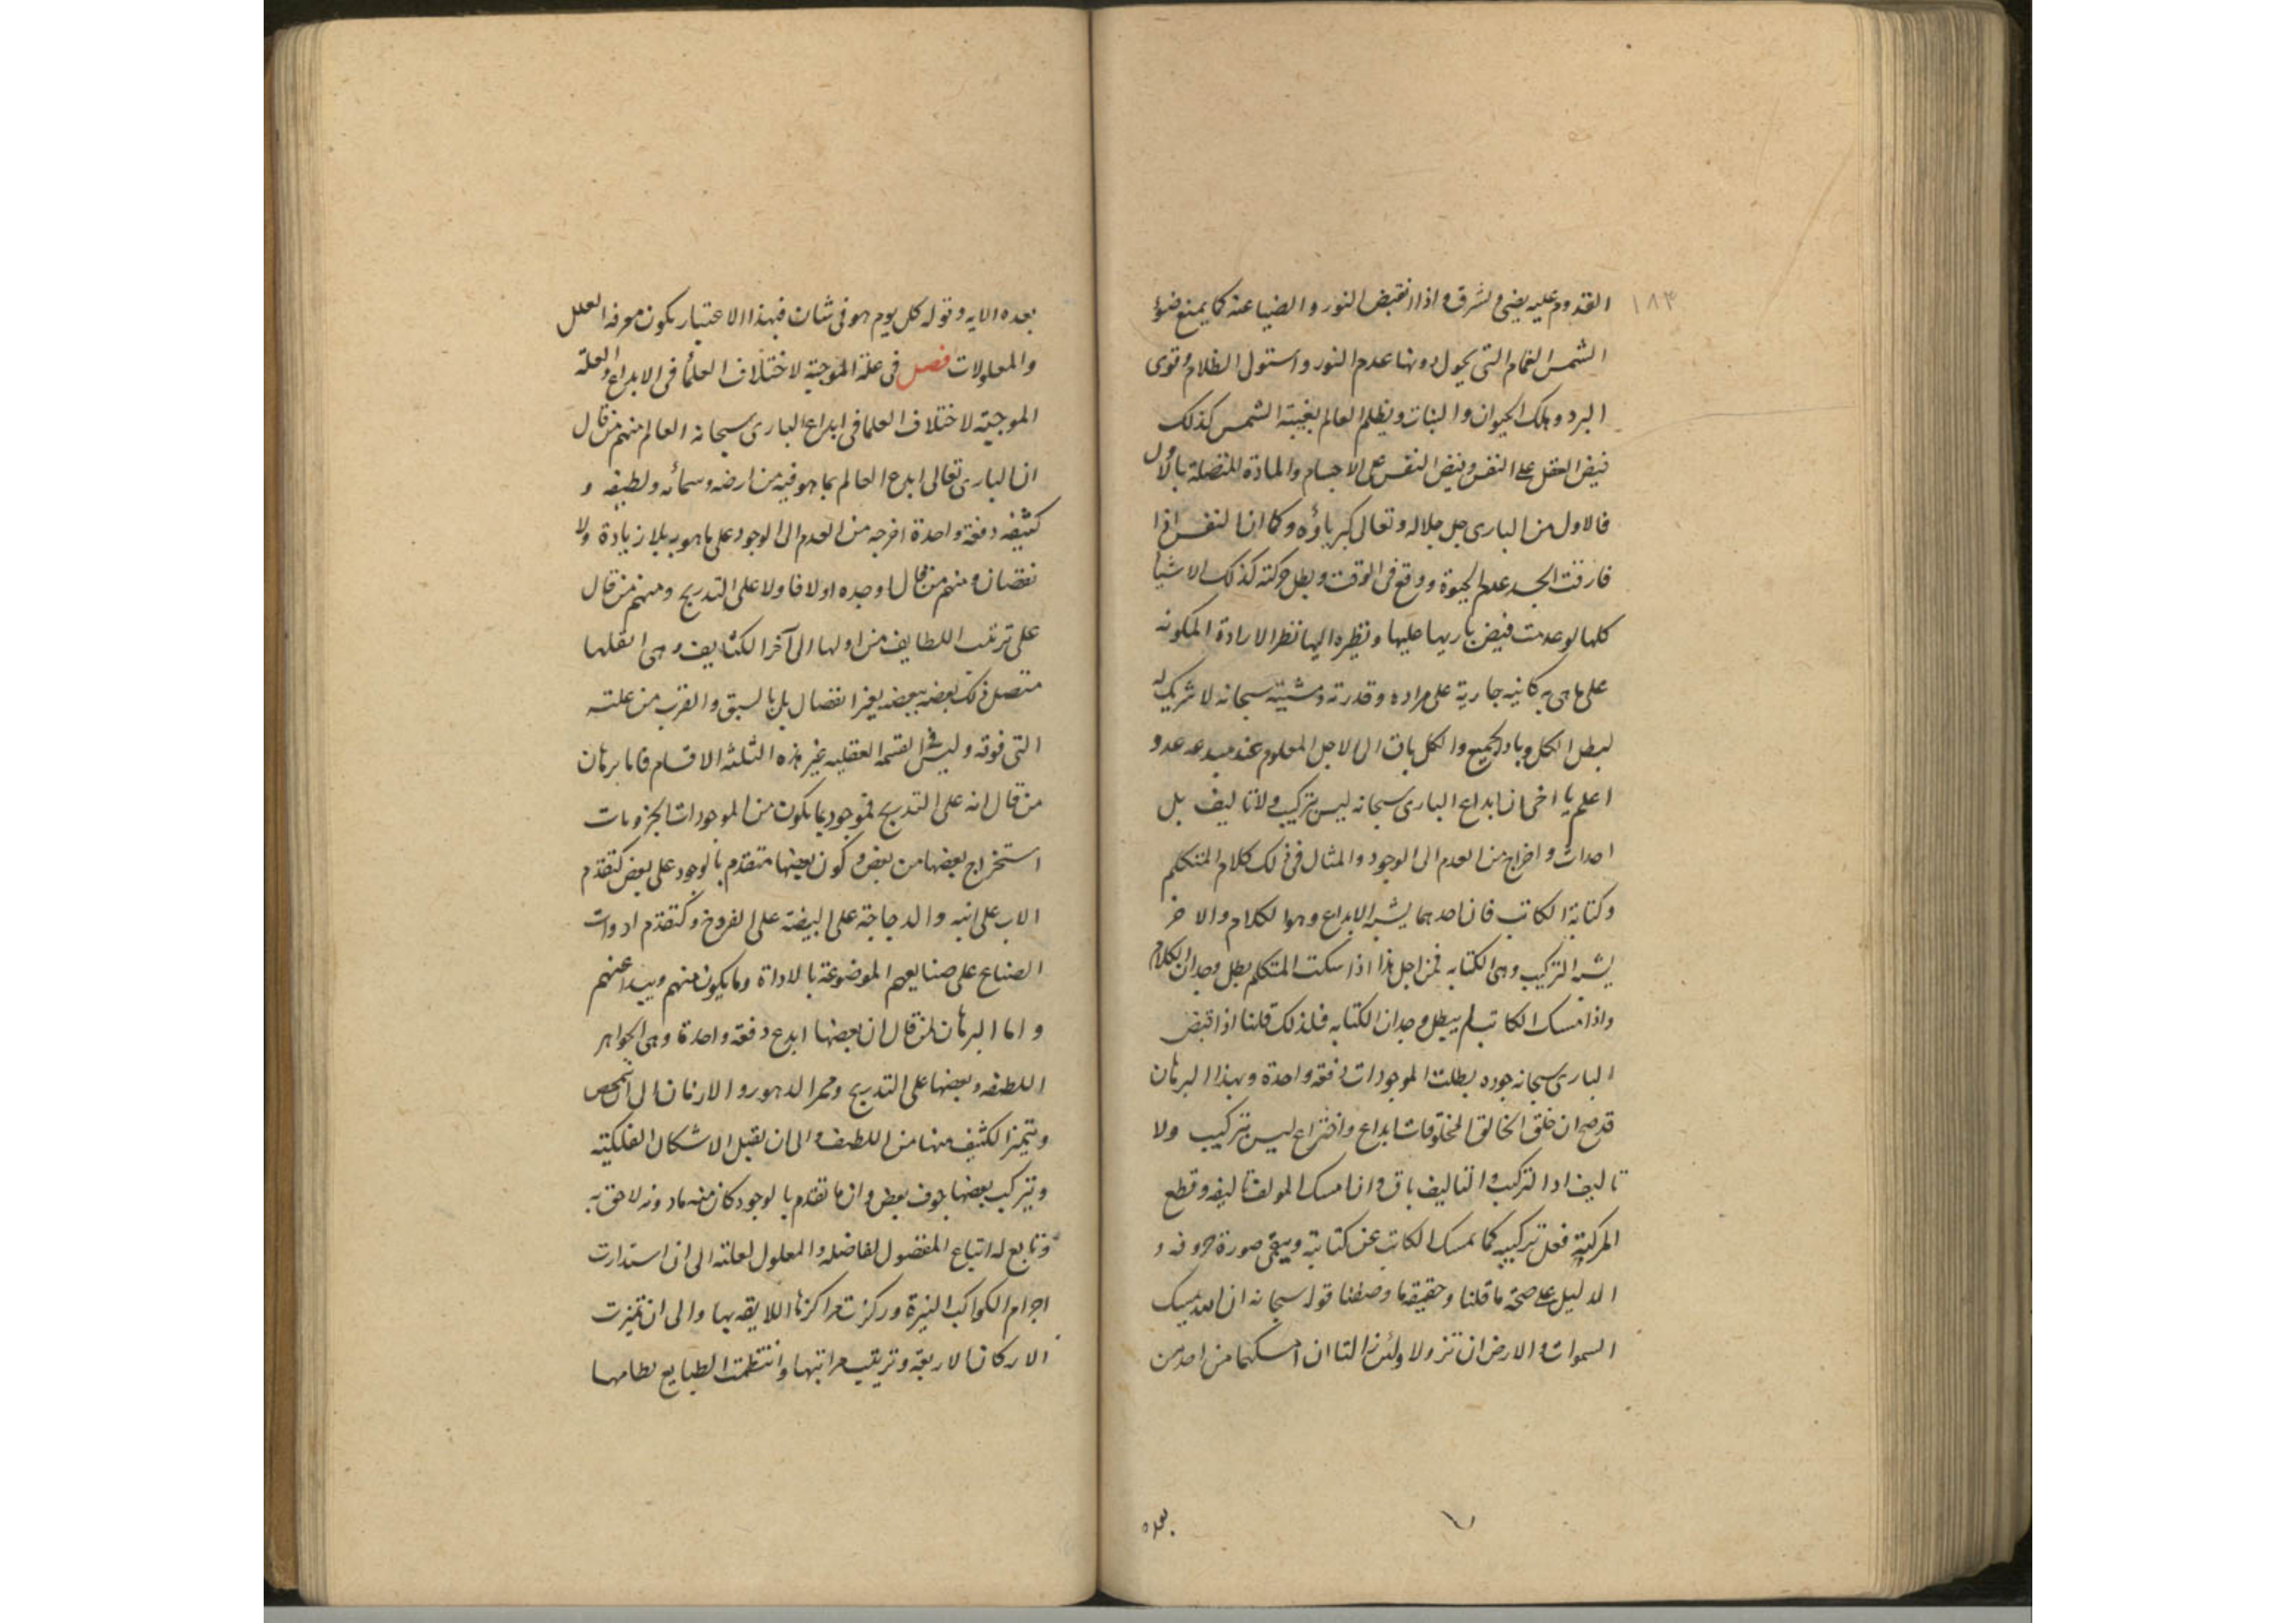 ١٨٣
القدوم عليه يضئ ويشرق واذا انقبض النور والضيا عنه كما يمنع ضوء
الشمس الغمام التي يحول دونها عدم النور واستولى الظلام وقوى
البرد وهلك الحيوان والنبات ويظلم العالم بغيبة الشمس كذلك
فيض العقل على النفس وفيض النفس على الاجسام والمادة المتصلة بالاول
فالاول من البارى جل جلاله وتعالى كبرياؤه وكما ان النفس اذا
فارقت الجسد عدم الحيوة ووقع فى الوقت وبطل حركته كذلك الاشيا
كلها لو عدمت فيض باريها عليها ونظره اليها نظر الارادة المكونه
على ما هى به كانيه جارية على مراده وقدرته ومشيته سبحانه لا شريك له
لبطل الكل وباد الجميع والكل باق الى الاجل المعلوم عند مبدعه عدو
اعلم يا اخى ان ابداع البارى سبحانه ليس بتركيب ولا تاليف بل
احداث واخراج من العدم الى الوجود والمثال فى ذلك كلام المتكلم
وكتابة الكاتب فان احدهما يشبه الابداع وهو الكلام والاخر
يشبه التركيب وهى الكتابه فمن اجل هذا اذا سكت المتكلم بطل وجدان الكلام
واذا امسك الكاتب لم يبطل وجدان الكتابه فلذلك قلنا اذا قبض
البارى سبحانه جوده بطلت الموجودات دفعه واحدة وبهذا البرهان
قد صح ان خلق الخالق المخلوقات ابداع واختراع ليس بتركيب ولا
تاليف اذ التركيب والتاليف باق وان امسك المولف تاليفه وقطع
المركب فعل تركيبه كما يمسك الكاتب عن كتابته ويبقى صورة حروفه و
الدليل على صحة ما قلنا وحقيقة ما وصفنا قوله سبحانه ان الله يمسك
السموات والارض ان تزولا ولئن زالتا ان امسكهما من احد من
بعده
بعده الايه وقوله كل يوم هو فى شان فبهذا الاعتبار يكون معرفه العلل
والمعلولات فصل فى علة الموجبة لاختلاف العلماء فى الابداع والعلة
الموجبة لاختلاف العلما فى ابداع البارى سبحانه العالم منهم من قال
ان البارى تعالى ابدع العالم بما هو فيه من ارضه وسمائه ولطيفه و
كثيفه دفعة واحدة اخرجه من العدم الى الوجود على ما هو به بلا زيادة ولا
نقصان ومنهم من قال اوجده اولا فاولا على التدريج ومنهم من قال
على ترتيب اللطايف من اولها الى آخر الكثايف وهى اثقلها
متصل ذلك بعضه ببعضه بغير انفصال بل بالسبق والقرب من علته
التى فوقه وليس فى القسمه العقليه غير هذه الثلثه الاقسام فاما برهان
من قال انه على التدريج فموجود بما يكون من الموجودات الجزويات
استخراج بعضها من بعض وكون بعضها متقدم بالوجود على بعض كتقدم
الاب على ابنه والدجاجة على البيضة على الفروخ وكتقدم ادوات
الصناع على صنايعهم الموضوعة بالاداة وما يكون منهم ويبدا عنهم
واما البرهان لمن قال ان بعضها ابدع دفعة واحدة وهى الجواهر
اللطيفه وبعضها على التدريج وممر الدهور والازمان الى ان تمخض
ويتميز الكثيف منها من اللطيف والى ان تقبل الاشكال الفلكية
ويتركب بعضها جوف بعض وان ما تقدم بالوجود كان منه ما دونه لاحق به
وتابع له اتباع المفضول لفاضله والمعلول لعلته الى ان استدارت
اجرام الكواكب النيرة وركزت مراكزها اللايقه بها والى ان تميزت
الاركان الاربعة وترتيب مراتبها وانتظمت الطبايع نظامها